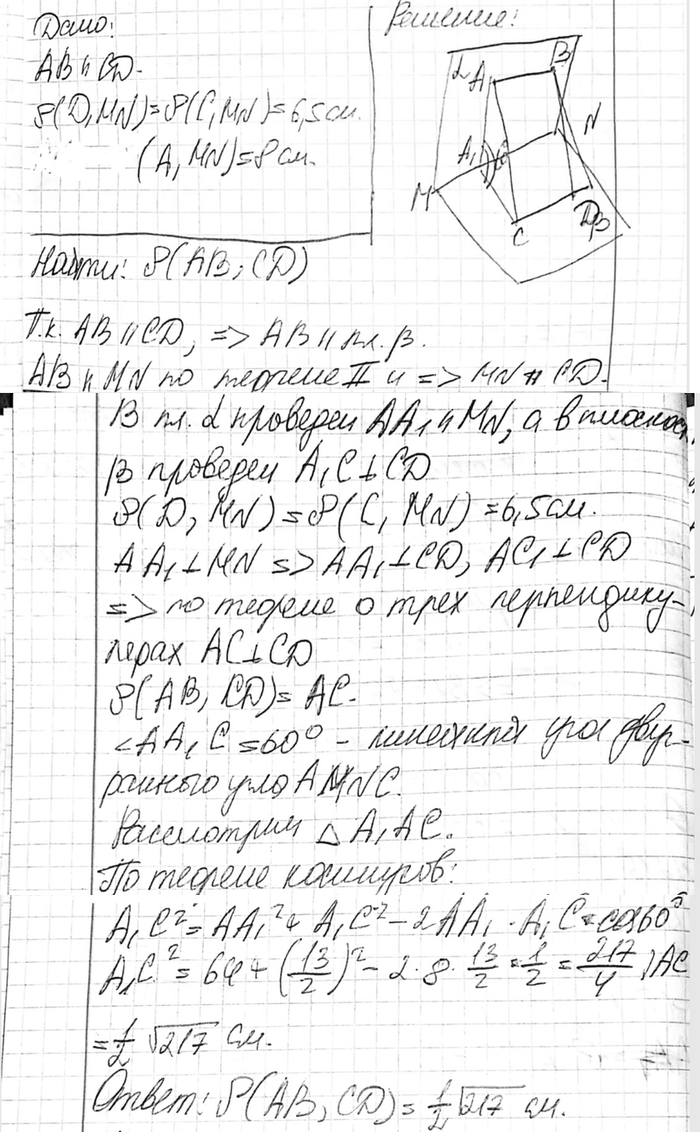 Дано:
AB ∥ CD.
ρ(D, MN) = ρ(C, MN) = 6,5 см.
(A, MN) = 8 см.
Найти: ρ(AB, CD)
Решение:
α A B
A₁ 60° N
M
C D β
Т.к. AB ∥ CD, => AB ∥ пл. β.
AB ∥ MN по теореме II и => MN ∥ CD.
В пл. α проведем AA₁ ∥ MN, а в плоскост
β проведем A₁C ⊥ CD
ρ(D, MN) = ρ(C, MN) = 6,5 см.
AA₁ ⊥ MN => AA₁ ⊥ CD, AC₁ ⊥ CD
=> по теореме о трех перпендику-
лерах AC ⊥ CD
ρ(AB, CD) = AC.
<AA₁C = 60° - линейный угол двуг-
ранного угла AMNC.
Рассмотрим △ A₁AC.
По теореме косинусов:
A₁C² = AA₁² + A₁C² - 2AA₁ · A₁C · cos60°
A₁C² = 64 + (13/2)² - 2 · 8 · 13/2 · 1/2 = 217/4, AC
= 1/2 √217 см.
Ответ: ρ(AB, CD) = 1/2 √217 см.